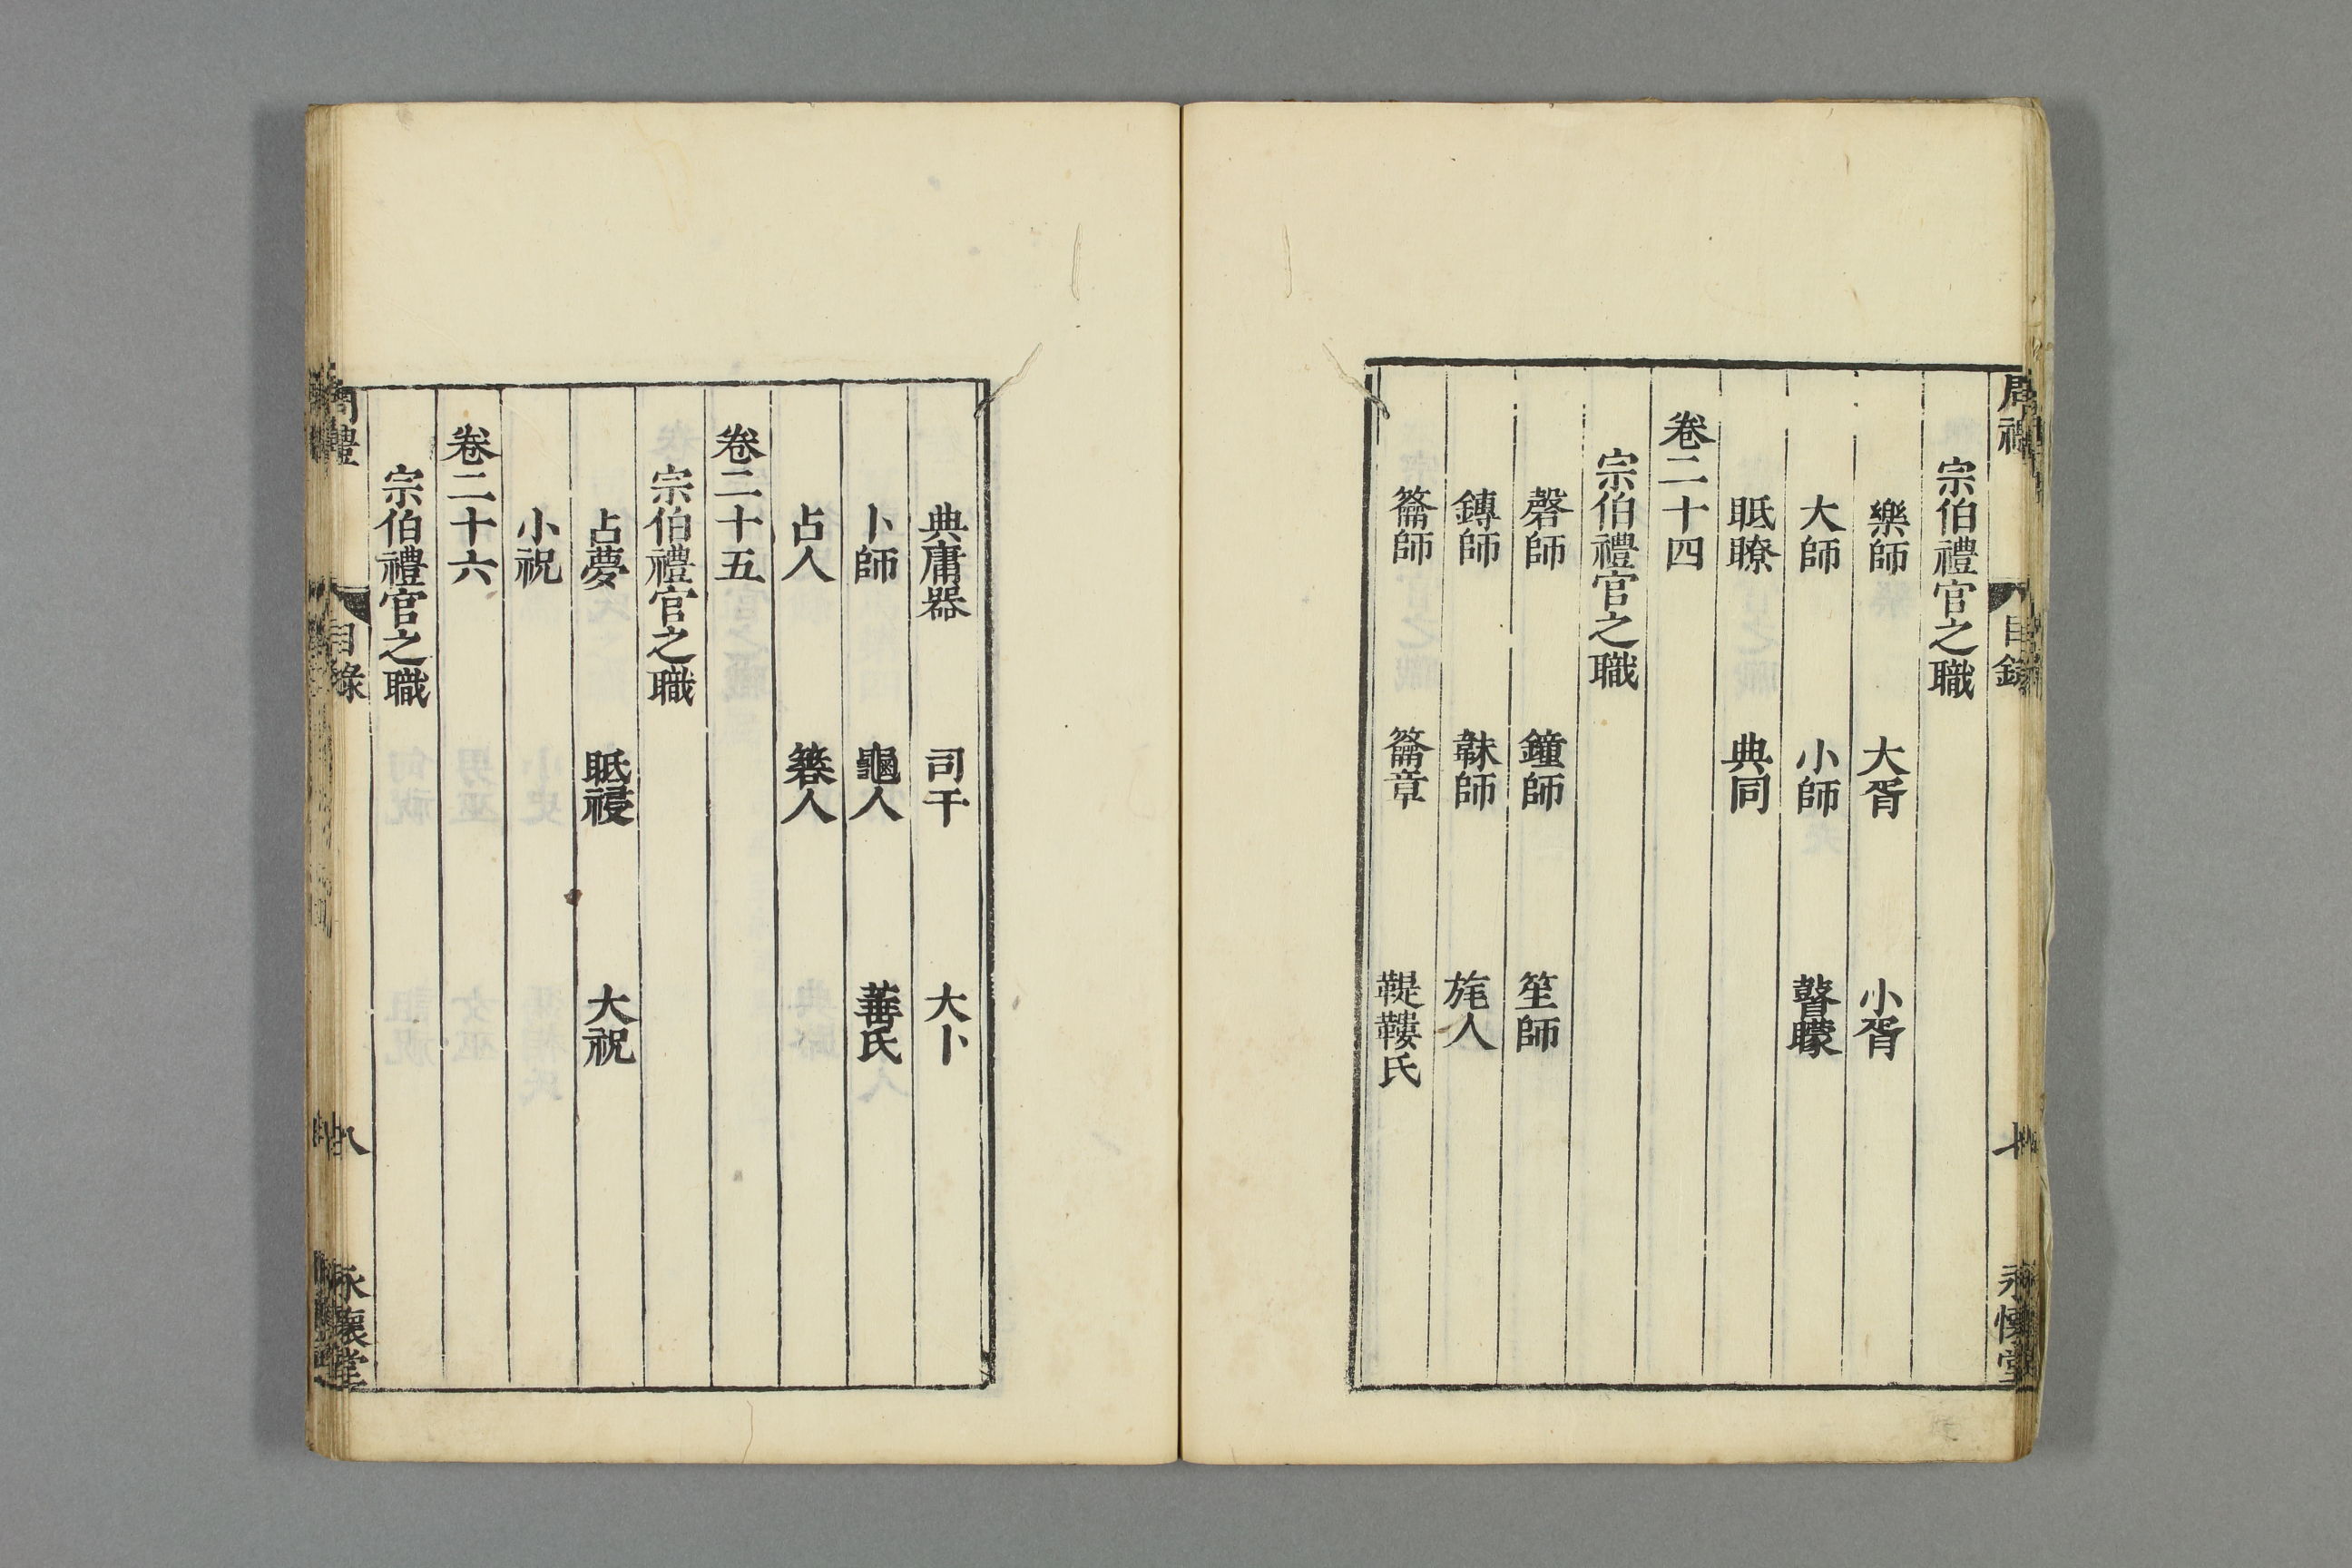 宗伯禮官之職
樂師 大胥 小胥
大師 小師 瞽矇
眡瞭 典同
卷二十四
宗伯禮官之職
磬師 鐘師 笙師
鎛師 韎師 旄人
籥師 籥章 鞮鞻氏
典庸器 司干 大卜
卜師 龜人 菙氏
占人 簭人
卷二十五
宗伯禮官之職
占夢 眡祲 大祝
小祝
卷二十六
宗伯禮官之職
周禮 目錄 八 永懷堂